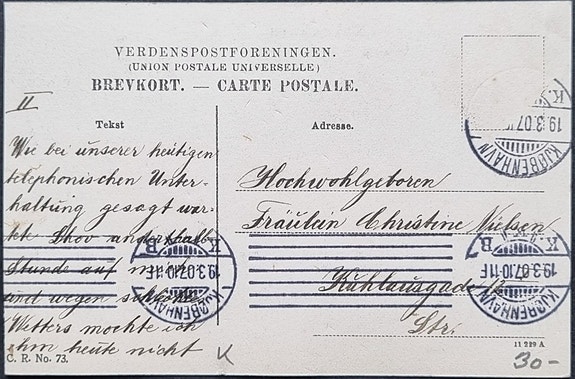 VERDENSPOSTFORENINGEN.
(UNION POSTALE UNIVERSELLE)
BREVKORT. — CARTE POSTALE.
II
Tekst
Adresse.
Wie bei unserer heutigen
telephonischen Unter-
haltung gesagt war-
tet Thov anderthalb
Stunde auf mich
und wegen
Wetters mochte ich
ihm heute nicht
Hochwohlgeboren
Fräulein Christine Nielsen
Kuhlausgade
Str.
K.
19.3.07.
KJØBENHAVN
K
B
19.3.07.10-11F
KJØBENHAVN
K
B
19.3.07.10-11F
KJØBENHAVN
C. R. No. 73.
11 219 A
30-